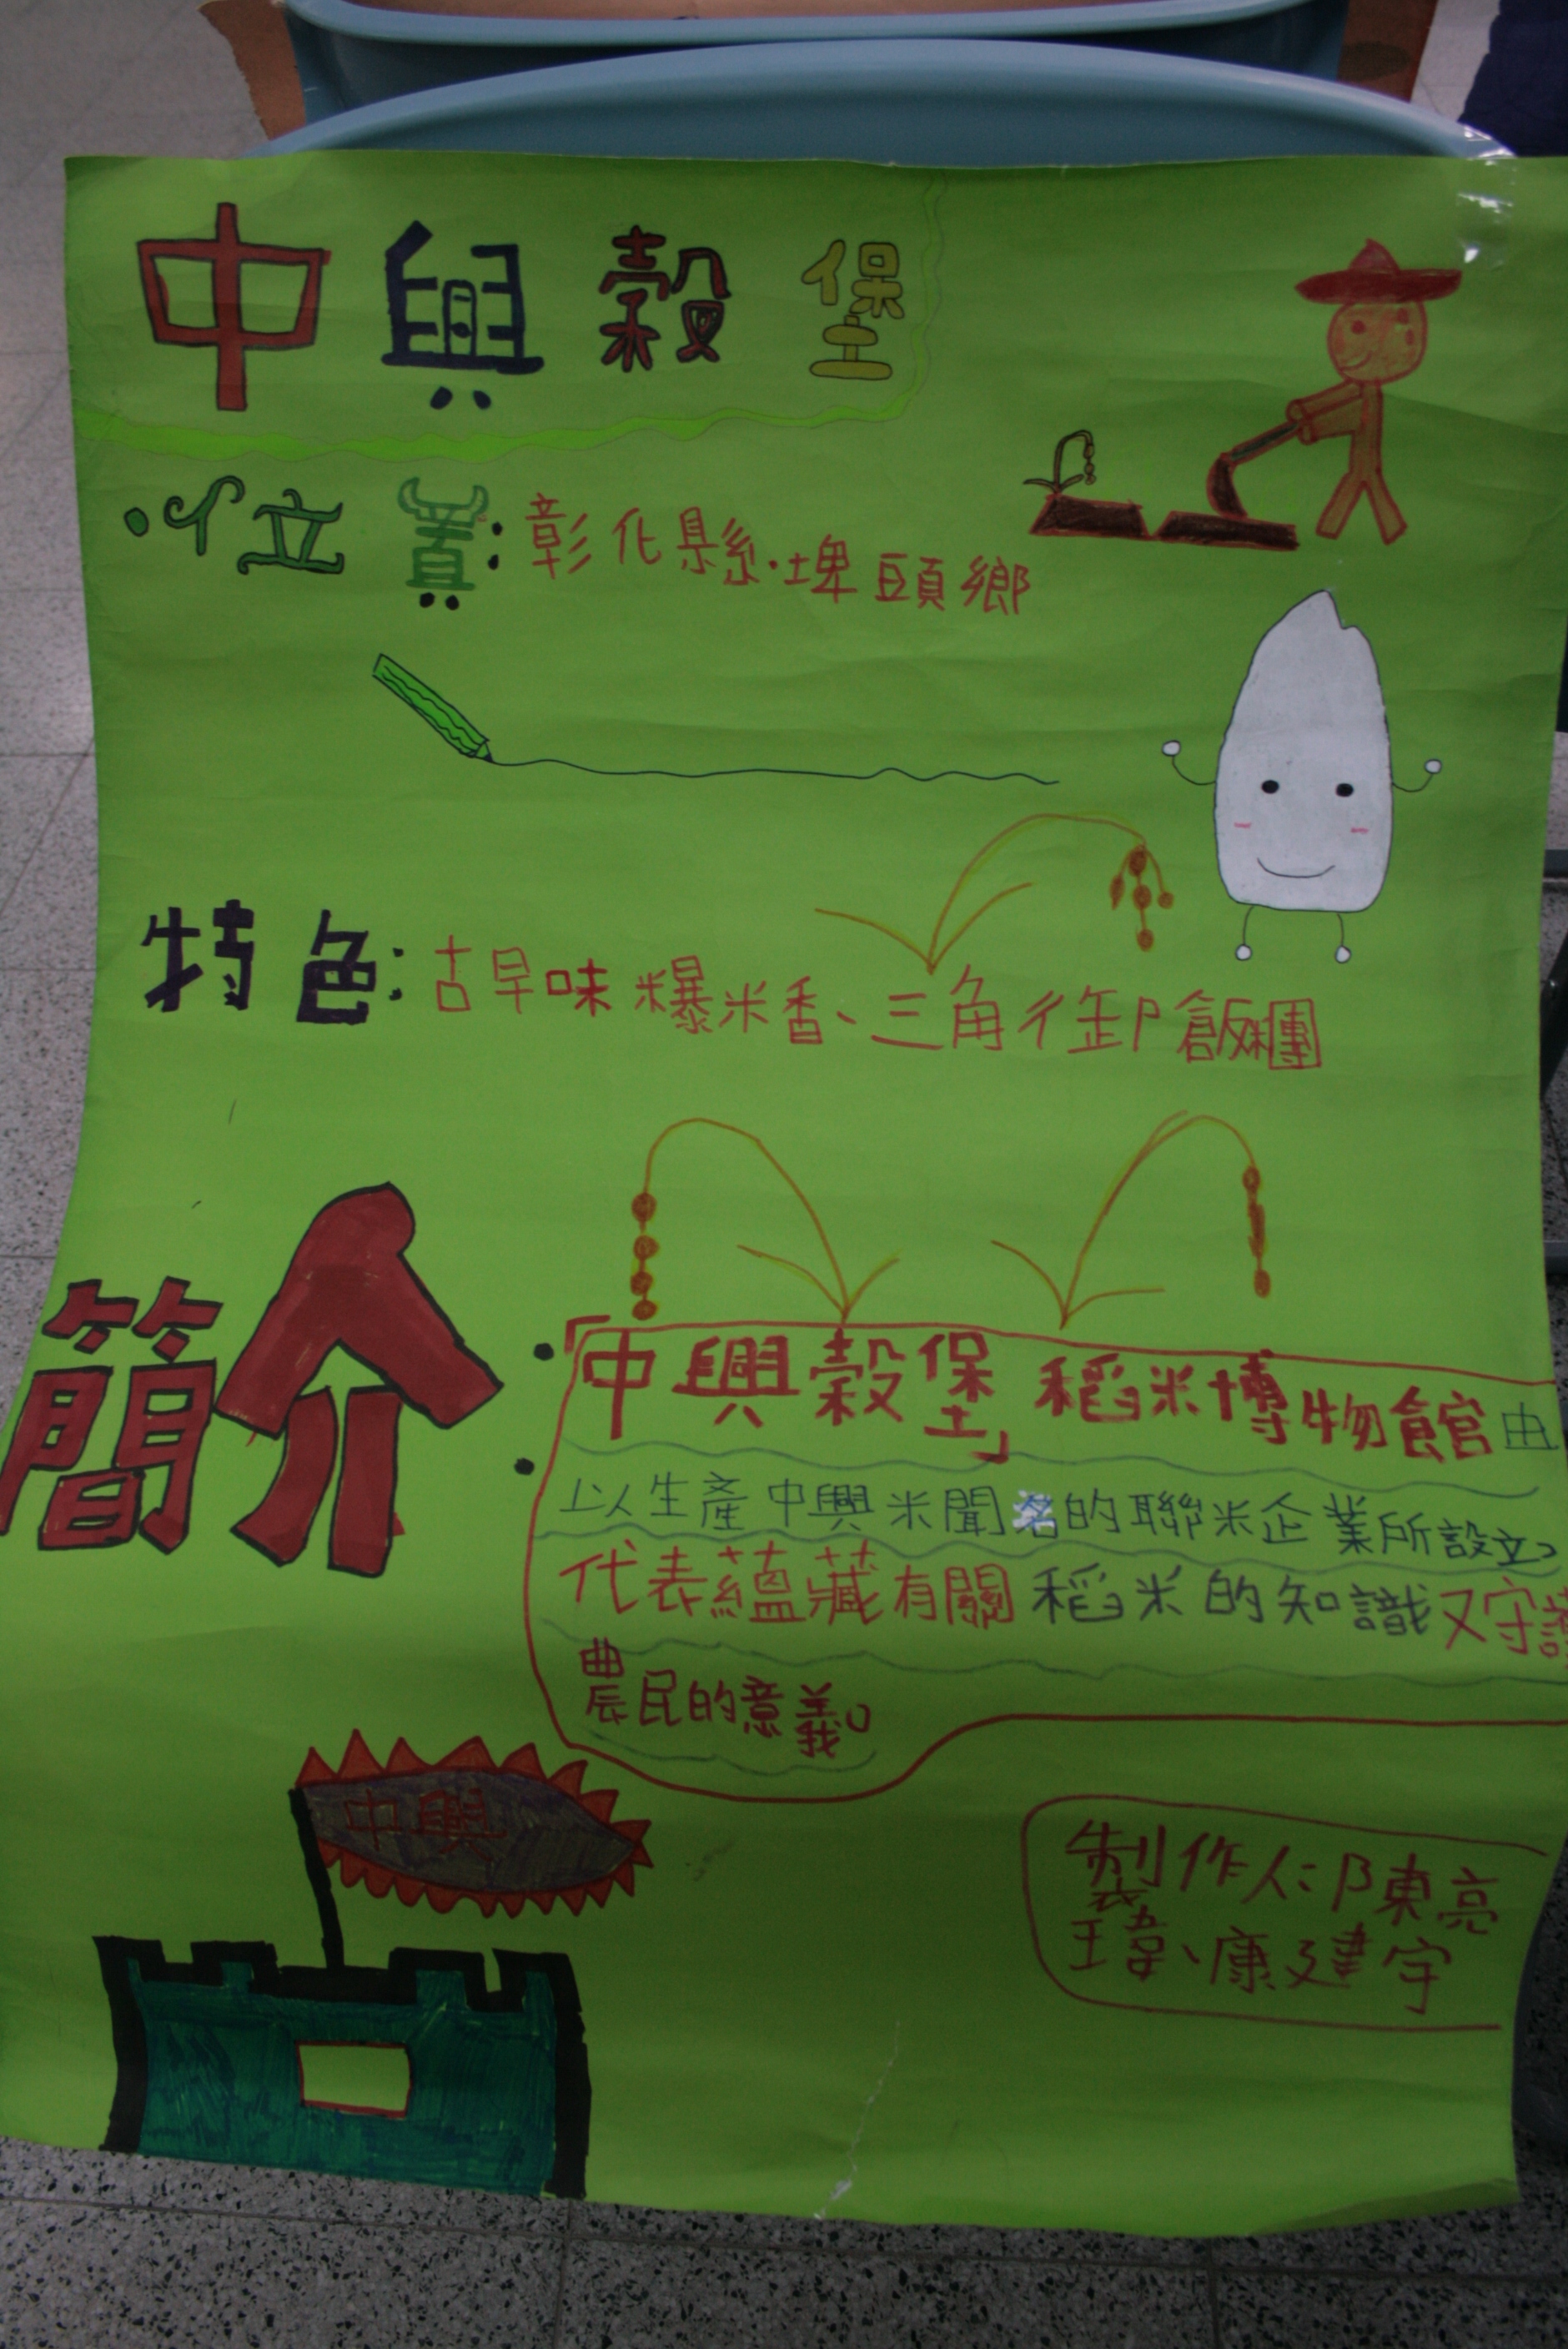 中興穀堡
•位置:彰化縣•埤頭鄉
特色:古早味爆米香、三角御飯糰
簡介
•「中興穀堡」稻米博物館由
•以生產中興米聞名的聯米企業所設立,
代表蘊藏有關稻米的知識又守護
農民的意義。
中興
製作人:陳亮
瑋、康建宇